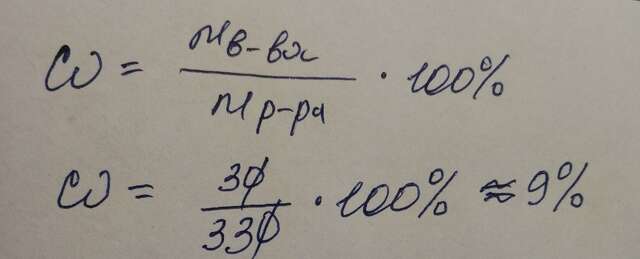 ω = m в-ва / m р-ра · 100%
ω = 30 / 330 · 100% ≈ 9%